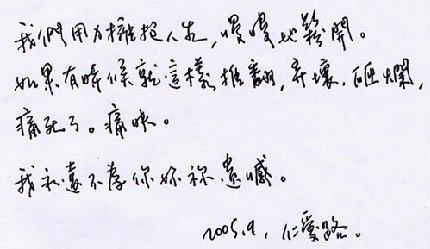 我們用力擁抱人生,慢慢地鬆開。
如果有時候就這樣推翻,弄壞,砸爛,
痛死了。痛快。
我永遠不你妳祢遺憾。
2005.9. 仁愛路。